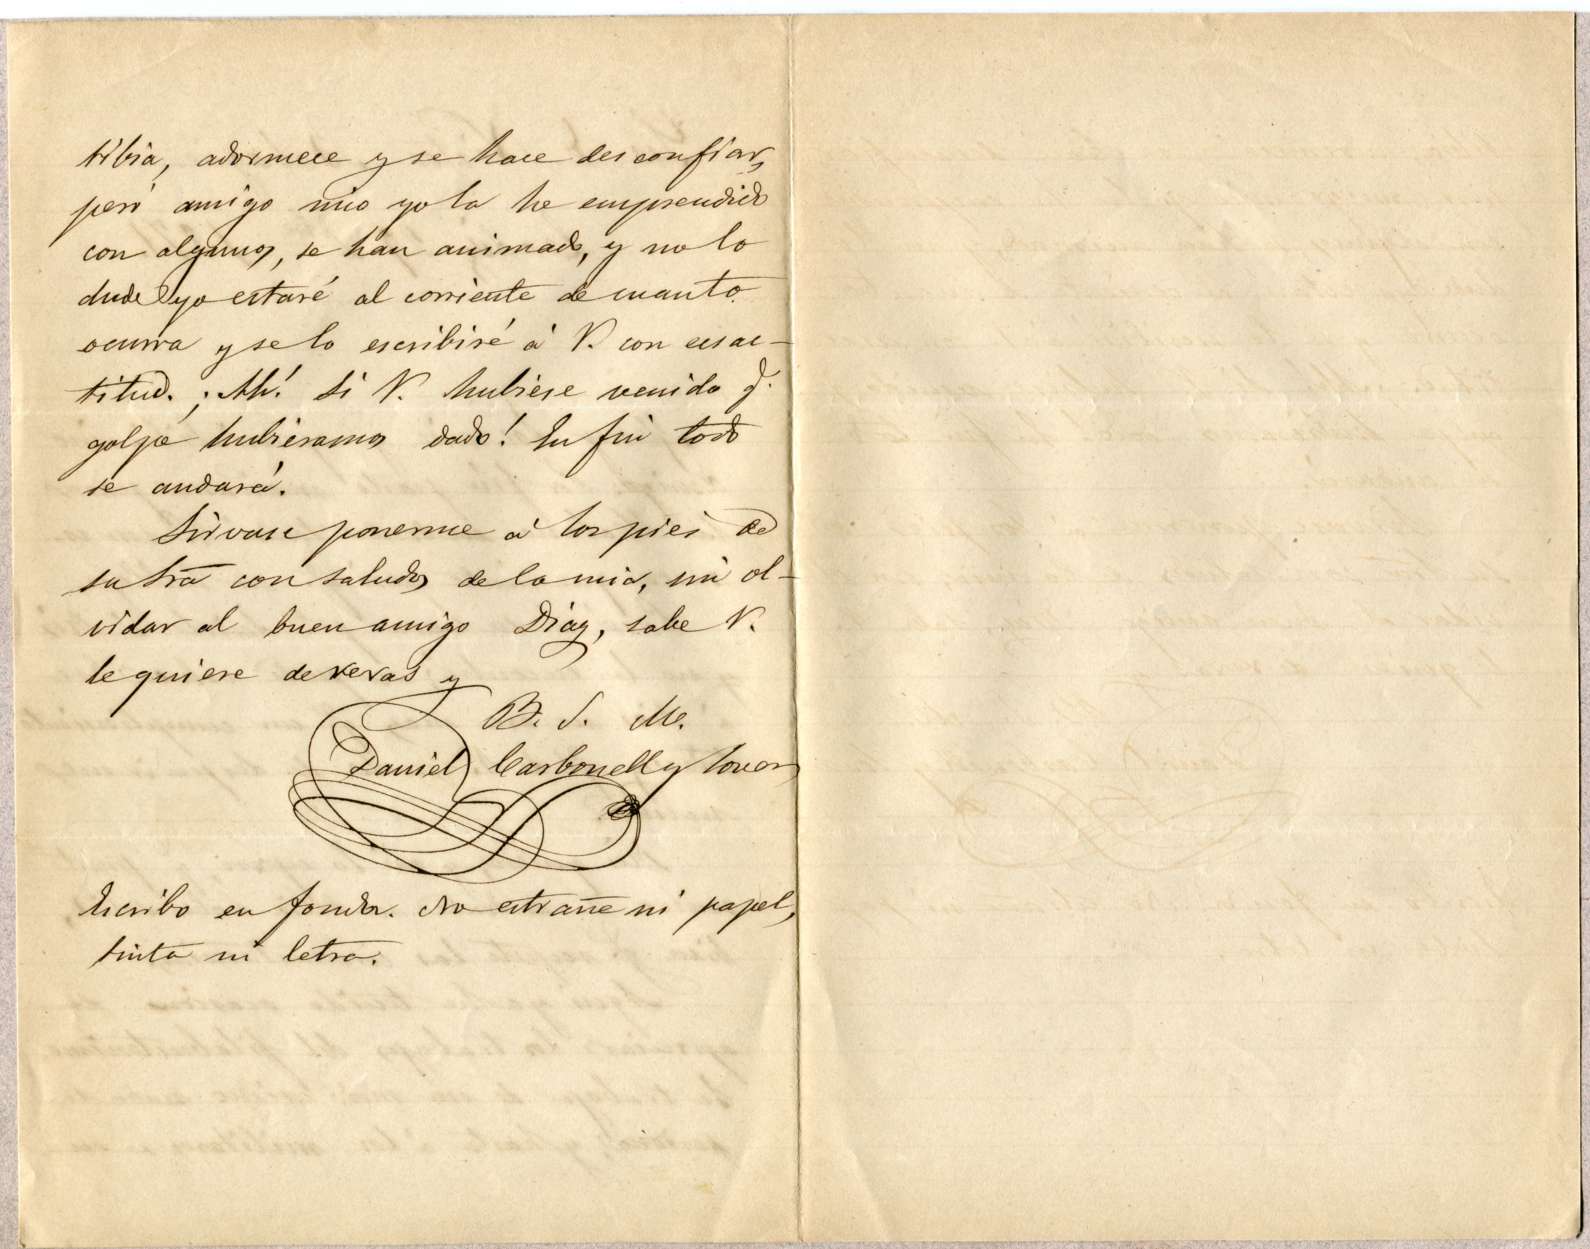 tibia, adormece y se hace desconfiar,
peró amigo mio yo la he emprendido
con algunos, se han animado, y no lo
dude yo estaré al corriente de cuanto
ocurra y se lo escribiré á V. con ecsac-
titud. ¡Ah! Si V. hubiese venido q.
golpe hubieramos dado! En fin todo
se andará.
Sirvase ponerme á los pies de
su Sra con saludos de la mia, sin ol-
vidar al buen amigo Diaz, sabe V.
le quiere de veras y
B. S. M.
Daniel Carbonell y Tovar
Escribo en fonda. No estrañe ni papel,
tinta ni letra.